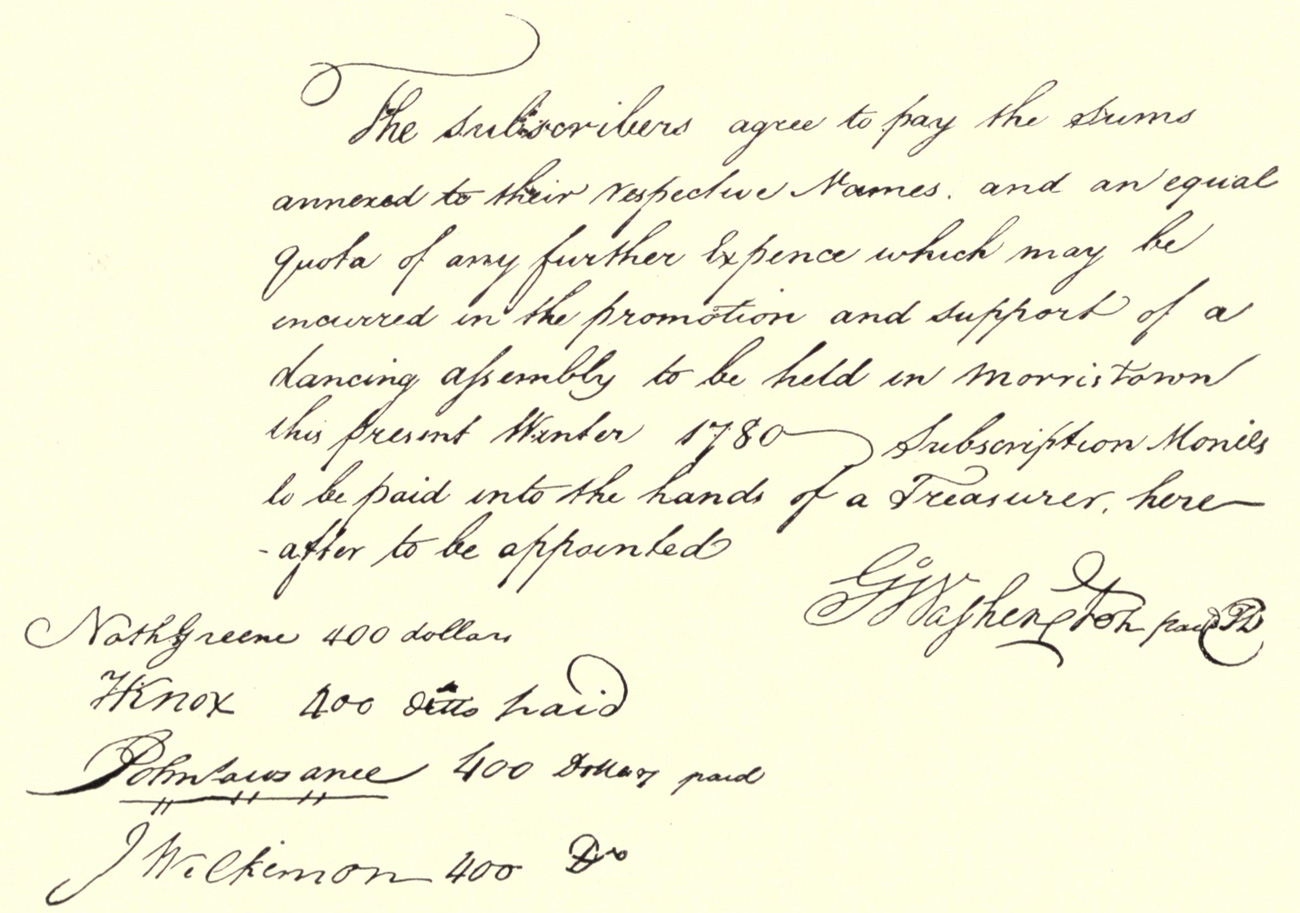 The Subscribers agree to pay the Sums
annexed to their respective Names. and an equal
quota of any further Expence which may be
incurred in the promotion and support of a
dancing assembly to be held in Morristown
this present Winter 1780 Subscription Monies
to be paid into the hands of a Treasurer, here
-after to be appointed
Go Washington paid
Nath Greene 400 dollars
HKnox 400 ditto paid
John Laurance 400 Dollars paid
J Wilkinson 400 Do